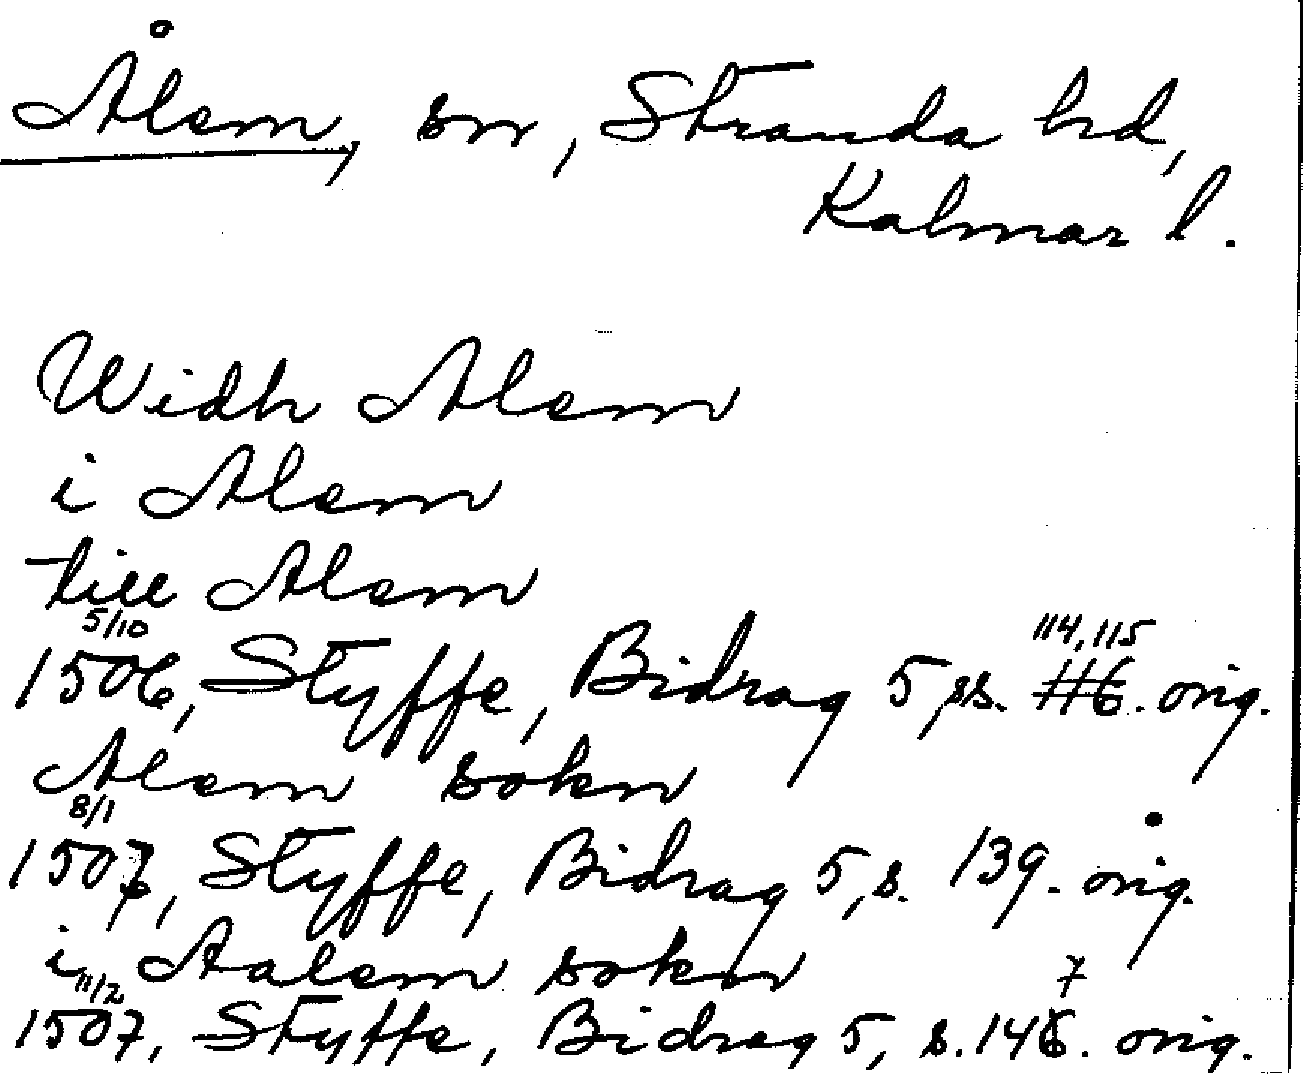 Ålem, sn, Stranda hd,
Kalmar l.
Widh Alem
i Alem
till Alem
5/10 114, 115
1506, Styffe, Bidrag 5, ss. 116. orig.
Alem sokn
8/1
1507, Styffe, Bidrag 5, s. 139. orig.
i Aalem sokn
11/2 7
1507, Styffe, Bidrag 5, s. 146. orig.